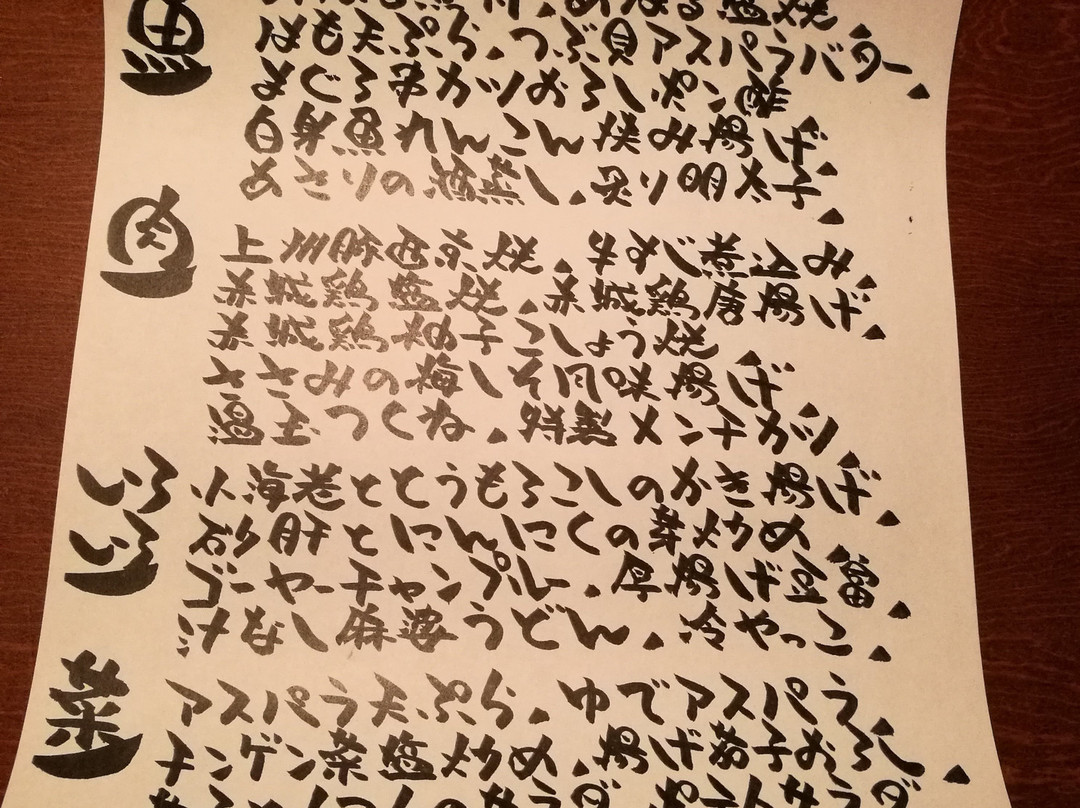 魚
塩焼
はも天ぷら、つぶ貝アスパラバター、
まぐろ串カツおろしポン酢
白身魚れんこん挟み揚げ、
あさりの酒蒸し、炙り明太子、
肉
上州豚西京焼、牛すじ煮込み、
赤城鶏塩焼、赤城鶏唐揚げ、
赤城鶏柚子こしょう焼
ささみの梅しそ風味揚げ、
温玉つくね、特製メンチカツ、
いろいろ
小海老ととうもろこしのかき揚げ、
砂肝とにんにくの芽炒め
ゴーヤーチャンプルー、厚揚げ豆富、
汁なし麻婆うどん、冷やっこ、
菜
アスパラ天ぷら、ゆでアスパラ、
チンゲン菜塩炒め、揚げ茄子おろし、